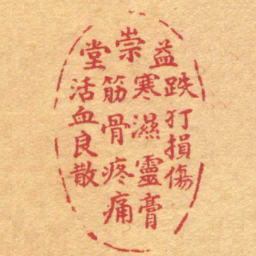 益崇堂
跌打損傷
寒濕靈膏
筋骨疼痛
活血良散